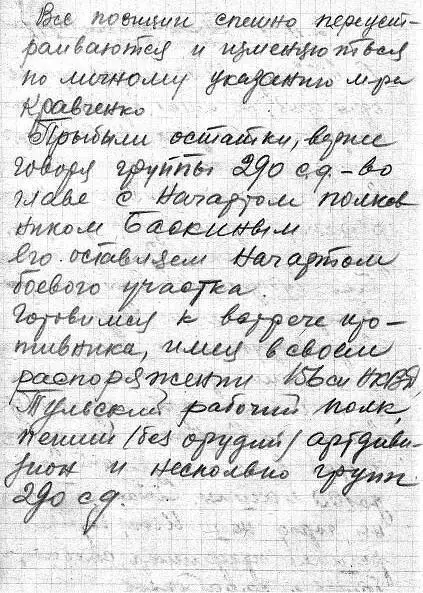 Все позиции спешно переуст-
раиваются и изменяються
по личному указанию м-ра
Кравченко
Прибыли остатки, вернее
говоря группы 290 с.д. – во
главе с начартом полков
ником Баскиным
его оставляем начартом
боевого участка.
Готовимся к встрече про-
тивника, имея в своем
распоряжении 156 сп НКВД,
Тульский рабочий полк,
пеший /без орудий/ артдиви-
зион и несколько групп
290 с.д.